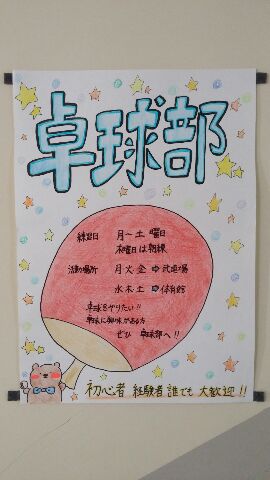 卓球部
練習日 月～土曜日
木曜日は朝練
活動場所 月・火・金 ⇨ 武道場
水・木・土 ⇨ 体育館
卓球をやりたい!!
卓球に興味がある方
ぜひ 卓球部へ!!
初心者 経験者 誰でも 大歓迎!!